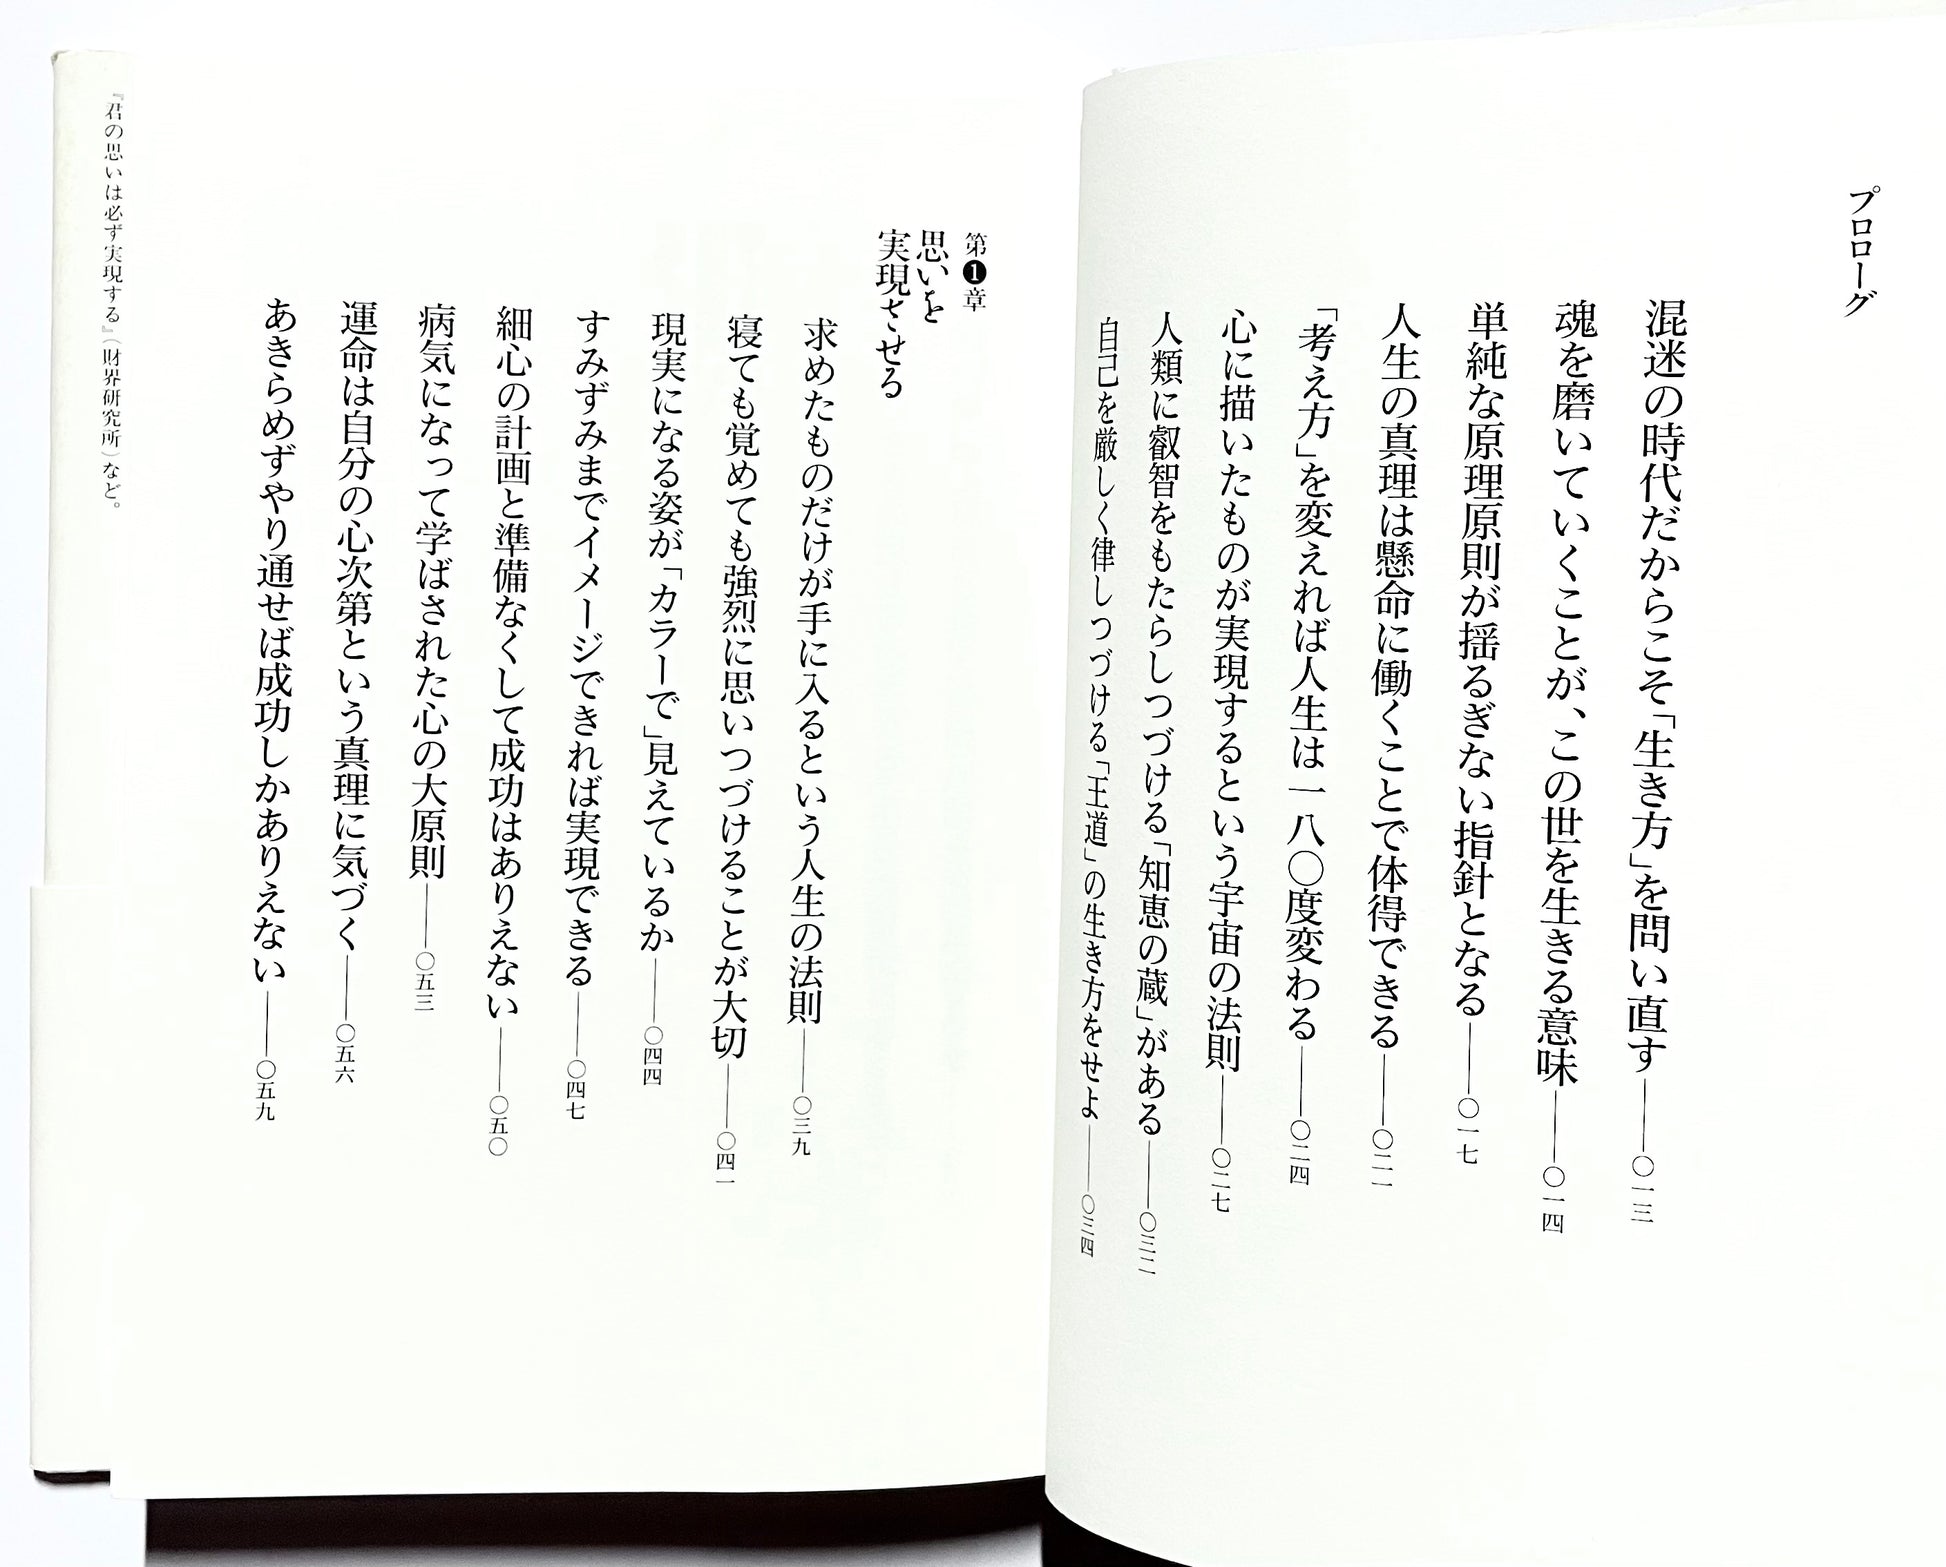 プロローグ
混迷の時代だからこそ「生き方」を問い直す――〇一三
魂を磨いていくことが、この世を生きる意味――〇一四
単純な原理原則が揺るぎない指針となる――〇一七
人生の真理は懸命に働くことで体得できる――〇二一
「考え方」を変えれば人生は一八〇度変わる――〇二四
心に描いたものが実現するという宇宙の法則――〇二七
人類に叡智をもたらしつづける「知恵の蔵」がある――〇三二
自己を厳しく律しつづける「王道」の生き方をせよ――〇三四
第1章
思いを
実現させる
求めたものだけが手に入るという人生の法則――〇三九
寝ても覚めても強烈に思いつづけることが大切――〇四一
現実になる姿が「カラーで」見えているか――〇四四
すみずみまでイメージできれば実現できる――〇四七
細心の計画と準備なくして成功はありえない――〇五〇
病気になって学ばされた心の大原則――〇五三
運命は自分の心次第という真理に気づく――〇五六
あきらめずやり通せば成功しかありえない――〇五九
『君の思いは必ず実現する』(財界研究所)など。